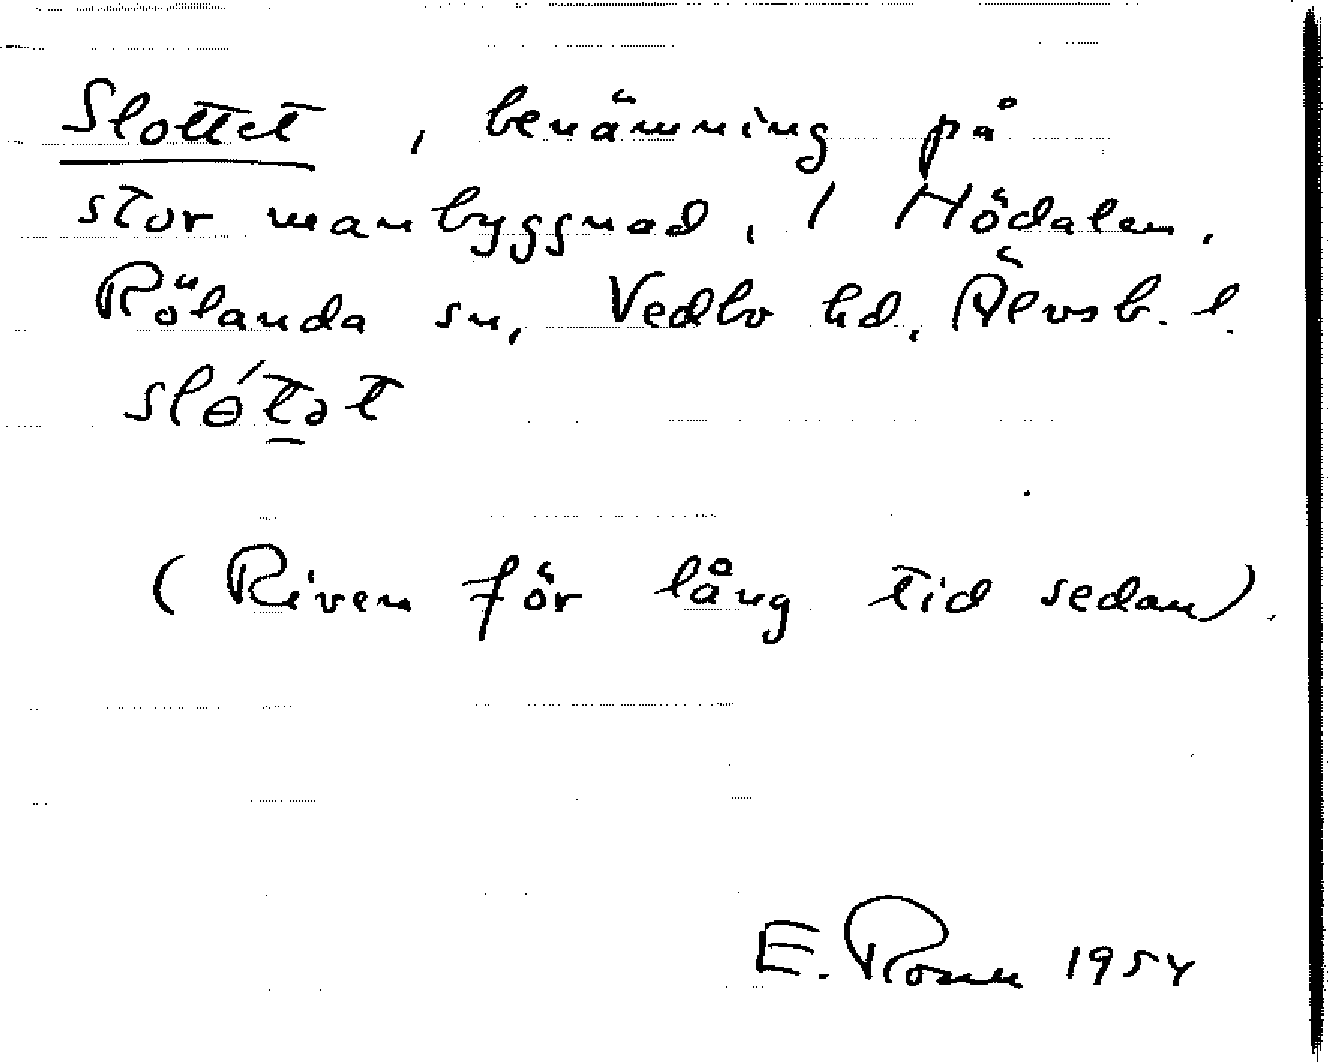 Slottet, benämning på
stor manbyggnad, i Hödalen,
Rölanda sn, Vedbo hd, Älvsb. l.
slɵ́t̲ət
(Riven för lång tid sedan).
E. Rosen 1954